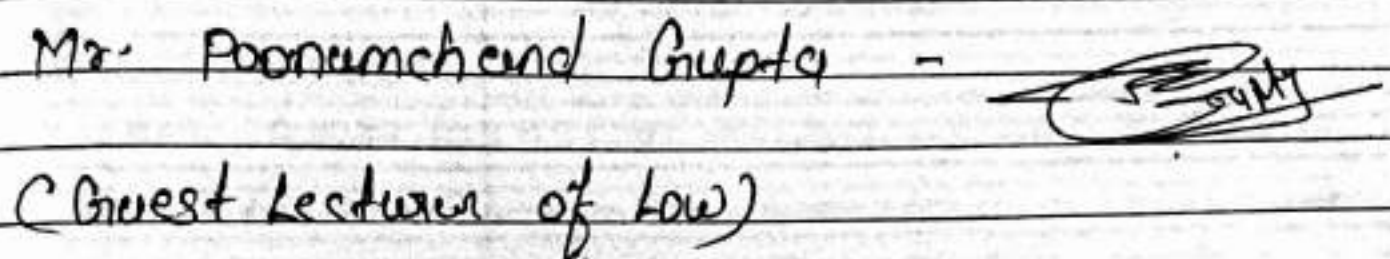 Mr. Poonamchand Gupta -
(Guest Lecturer of Law)